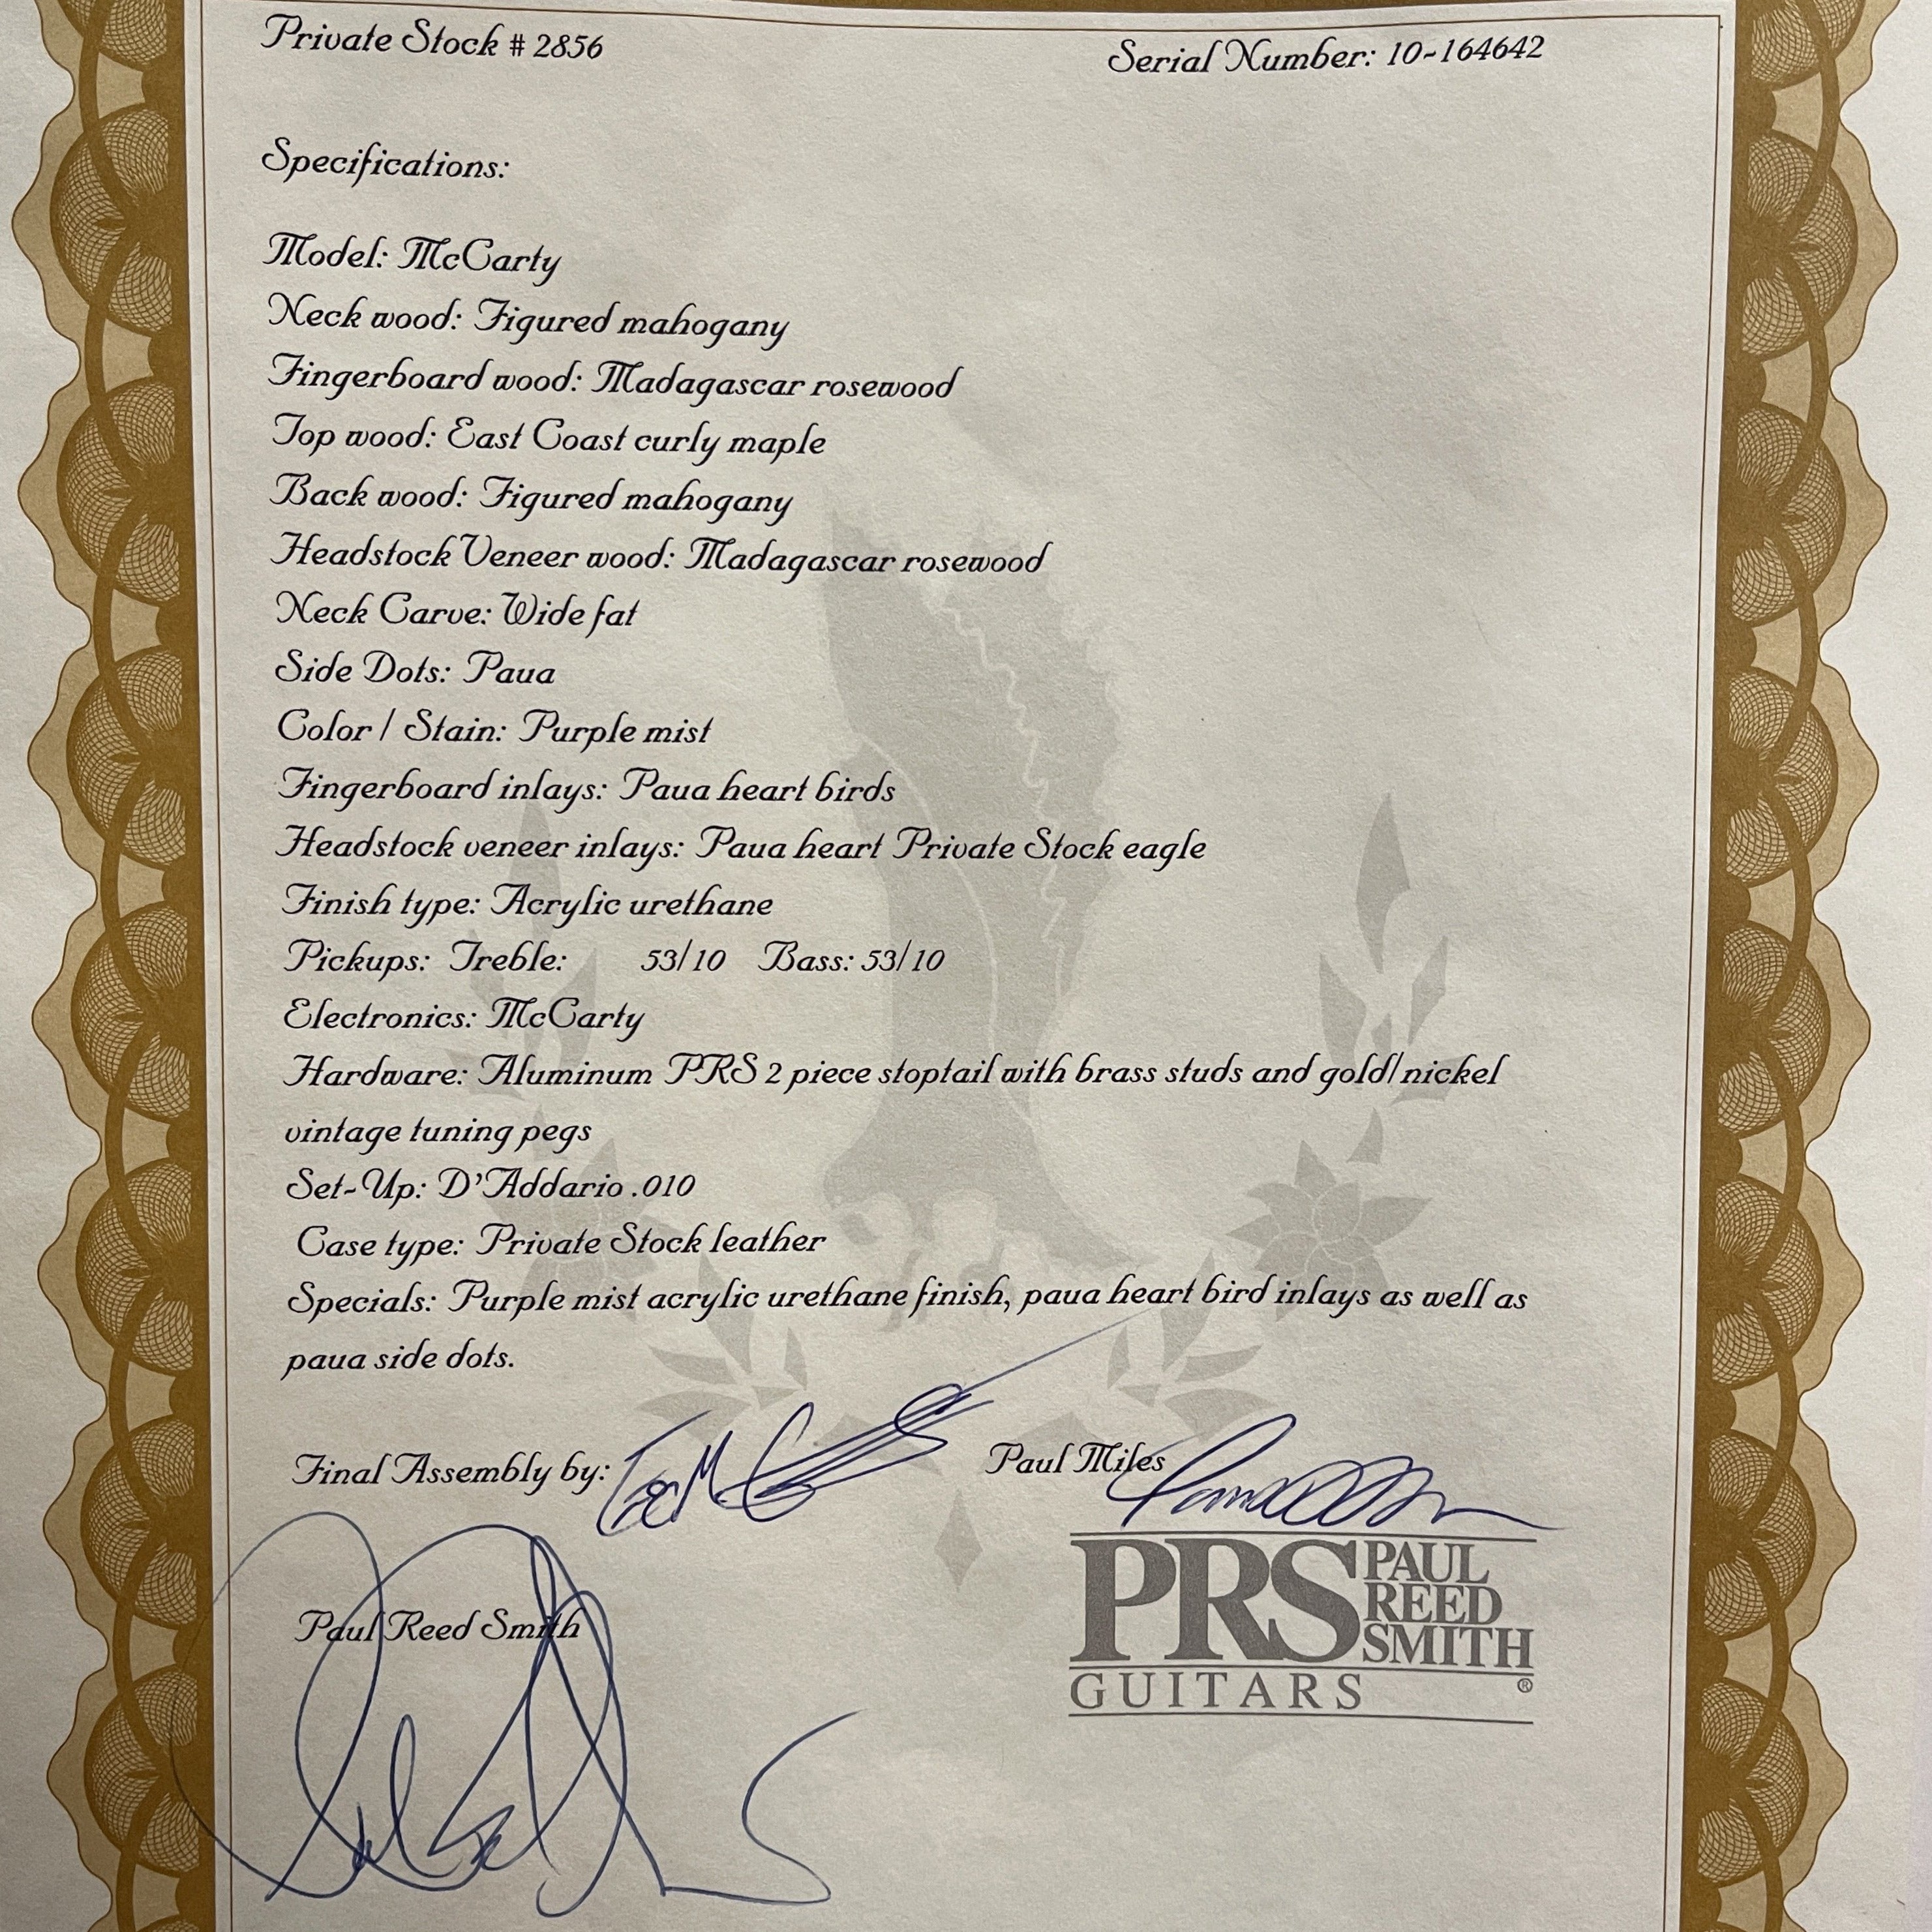 Private Stock # 2856
Serial Number: 10-164642
Specifications:
Model: McCarty
Neck wood: Figured mahogany
Fingerboard wood: Madagascar rosewood
Top wood: East Coast curly maple
Back wood: Figured mahogany
Headstock Veneer wood: Madagascar rosewood
Neck Carve: Wide fat
Side Dots: Paua
Color / Stain: Purple mist
Fingerboard inlays: Paua heart birds
Headstock veneer inlays: Paua heart Private Stock eagle
Finish type: Acrylic urethane
Pickups: Treble: 53/10 Bass: 53/10
Electronics: McCarty
Hardware: Aluminum PRS 2 piece stoptail with brass studs and gold/nickel
vintage tuning pegs
Set-Up: D'Addario .010
Case type: Private Stock leather
Specials: Purple mist acrylic urethane finish, paua heart bird inlays as well as
paua side dots.
Final Assembly by:
Paul Miles
Paul Reed Smith
PRS PAUL
REED
SMITH
GUITARS ®